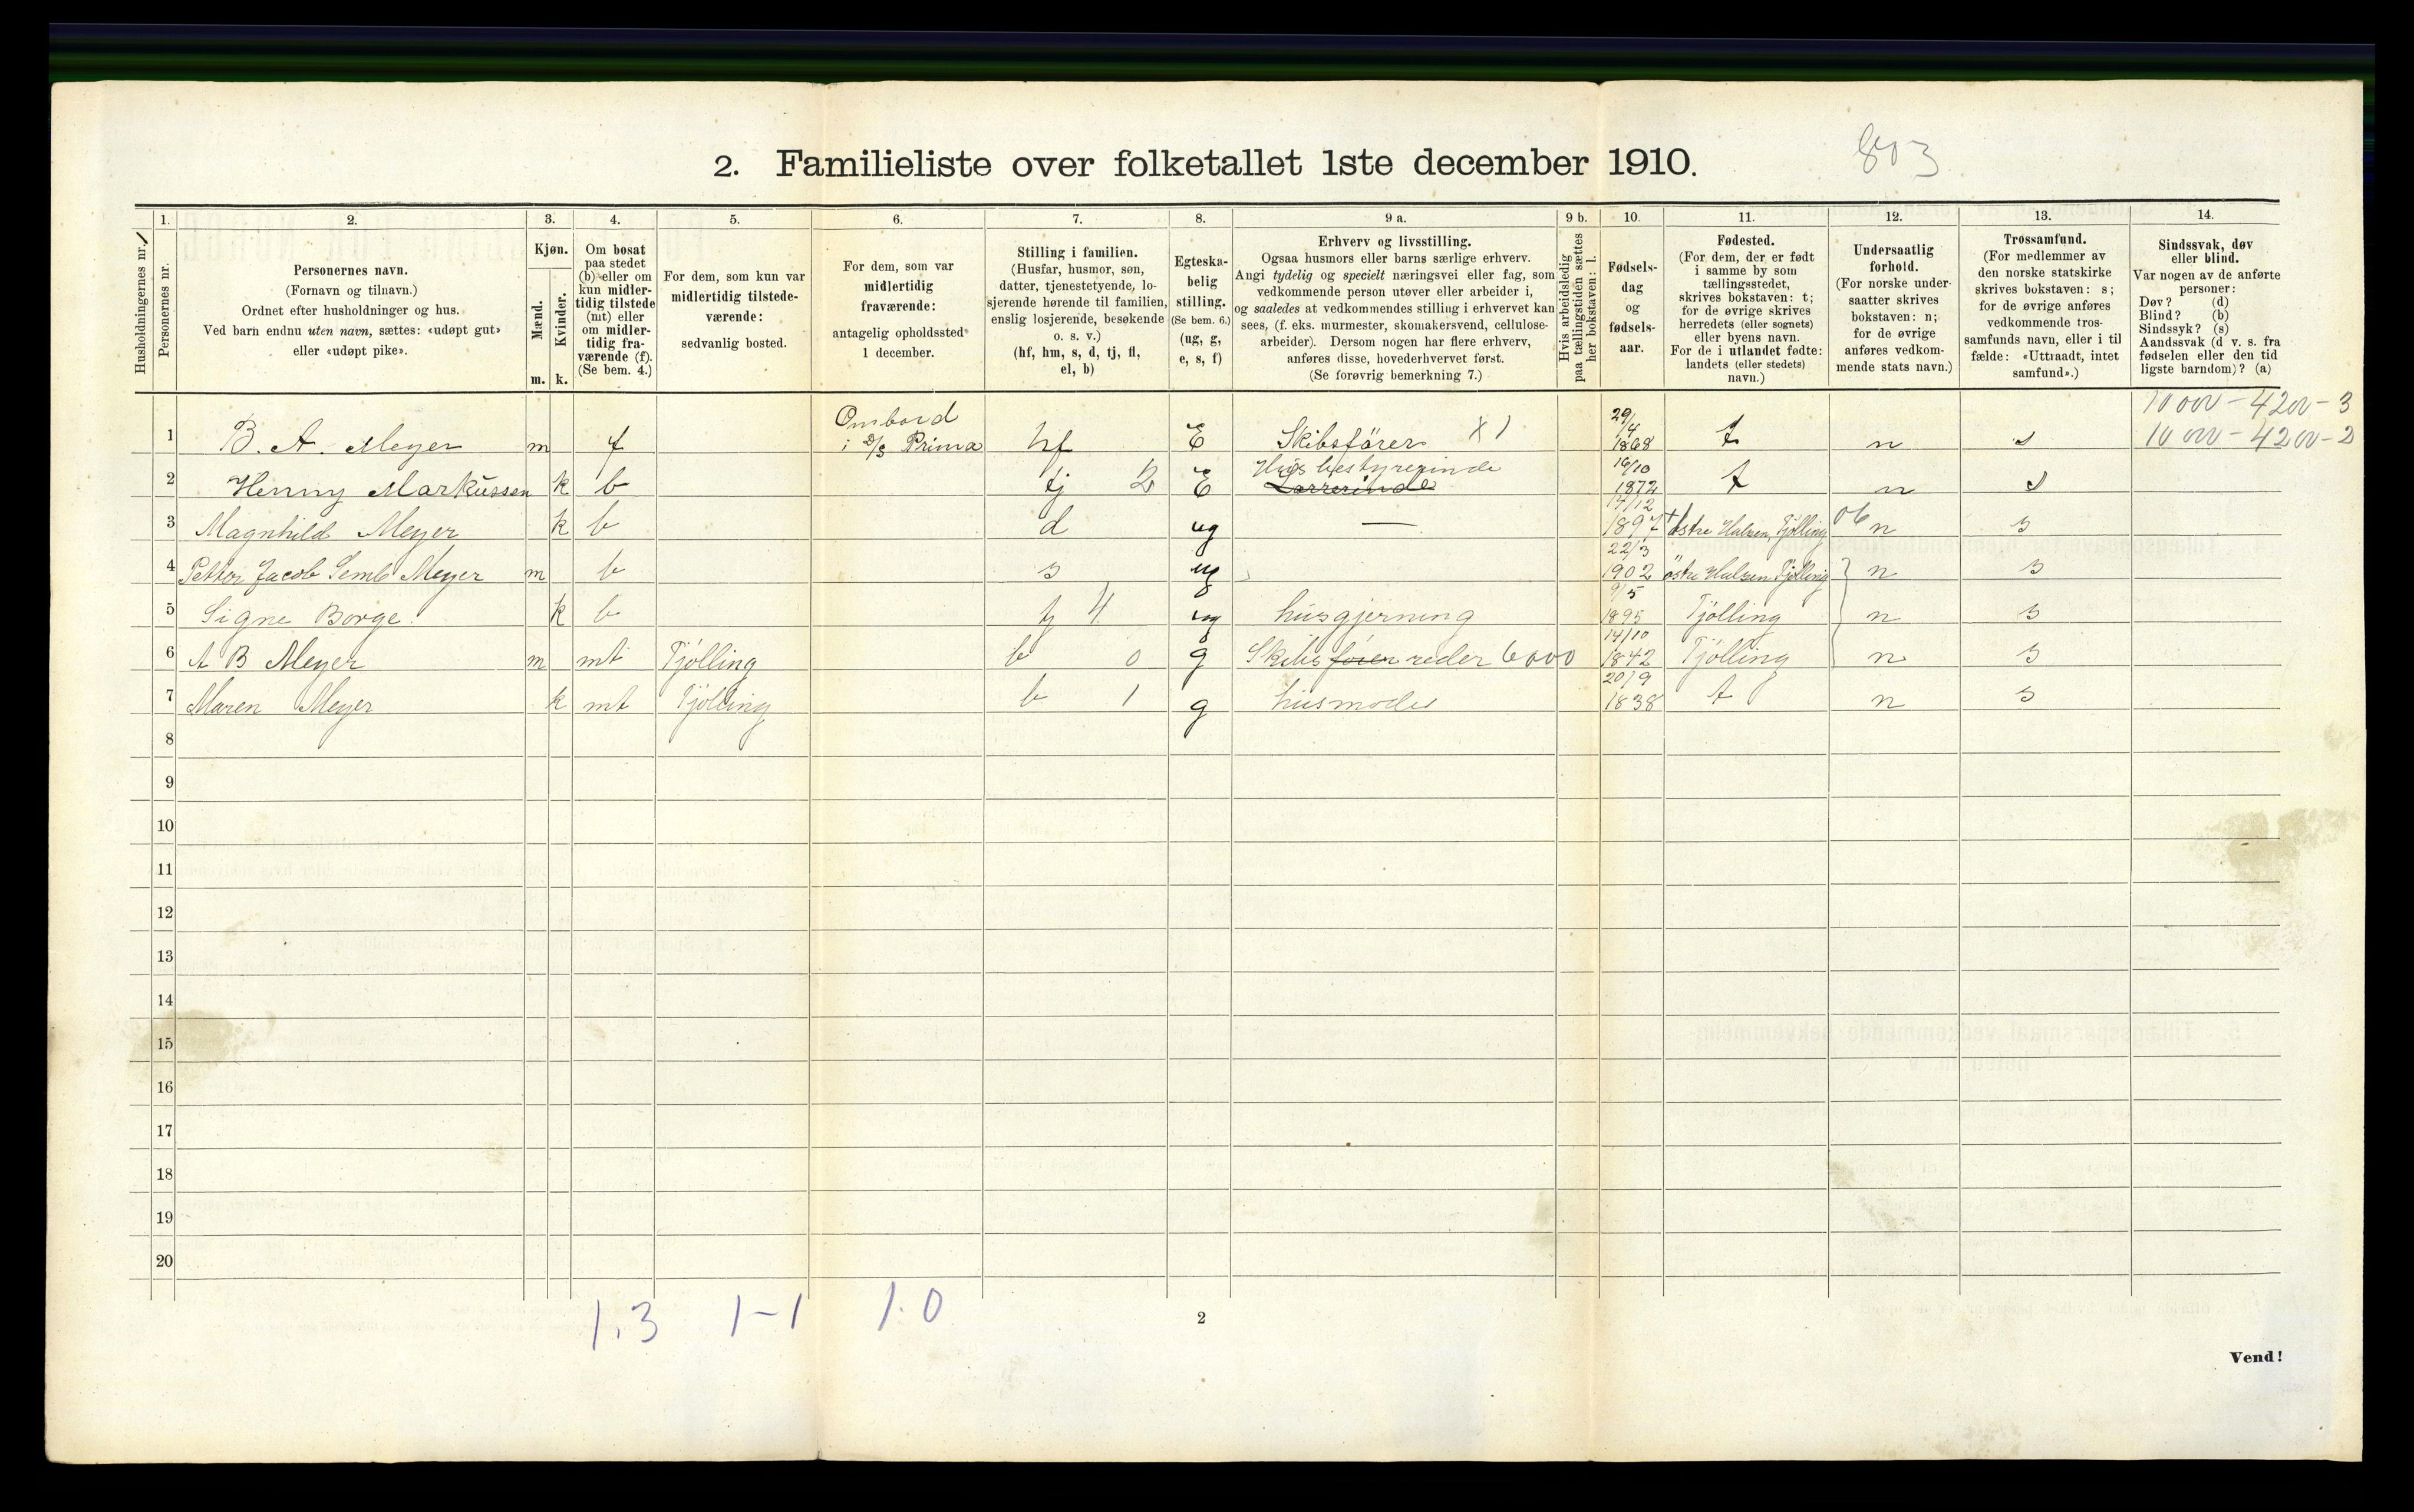 2. Familieliste over folketallet 1ste december 1910.
803
1. 2. 3. 4. 5. 6. 7. 8. 9 a. 9 b. 10. 11. 12. 13. 14.
Husholdningernes nr.
Personernes nr.
Personernes navn.
(Fornavn og tilnavn.)
Ordnet efter husholdninger og hus.
Ved barn endnu uten navn, sættes: «udøpt gut»
eller «udøpt pike».
Kjøn.
Mænd.
Kvinder.
m. k.
Om bosat
paa stedet
(b) eller om
kun midler-
tidig tilstede
(mt) eller
om midler-
tidig fra-
værende (f).
(Se bem. 4.)
For dem, som kun var
midlertidig tilstede-
værende:
sedvanlig bosted.
For dem, som var
midlertidig
fraværende:
antagelig opholdssted
1 december.
Stilling i familien.
(Husfar, husmor, søn,
datter, tjenestetyende, lo-
sjerende hørende til familien,
enslig losjerende, besøkende
o. s. v.)
(hf, hm, s, d, tj, fl,
el, b)
Egteska-
belig
stilling.
(Se bem. 6.)
(ug, g,
e, s, f)
Erhverv og livsstilling.
Ogsaa husmors eller barns særlige erhverv.
Angi tydelig og specielt næringsvei eller fag, som
vedkommende person utøver eller arbeider i,
og saaledes at vedkommendes stilling i erhvervet kan
sees, (f. eks. murmester, skomakersvend, cellulose-
arbeider). Dersom nogen har flere erhverv,
anføres disse, hovederhvervet først.
(Se forøvrig bemerkning 7.)
Hvis arbeidsledig
paa tællingstiden sættes
her bokstaven: l.
Fødsels-
dag
og
fødsels-
aar.
Fødested.
(For dem, der er født
i samme by som
tællingsstedet,
skrives bokstaven: t;
for de øvrige skrives
herredets (eller sognets)
eller byens navn.
For de i utlandet fødte:
landets (eller stedets)
navn.)
Undersaatlig
forhold.
(For norske under-
saatter skrives
bokstaven: n;
for de øvrige
anføres vedkom-
mende stats navn.)
Trossamfund.
(For medlemmer av
den norske statskirke
skrives bokstaven: s;
for de øvrige anføres
vedkommende tros-
samfunds navn, eller i til
fælde: «Uttraadt, intet
samfund».)
Sindssvak, døv
eller blind.
Var nogen av de anførte
personer:
Døv? (d)
Blind? (b)
Sindssyk? (s)
Aandssvak (d v. s. fra
fødselen eller den tid
ligste barndom)? (a)
10000 - 4200 - 3
1 B. A. Meyer m f Ombord i D/S Prima hf E Skibsfører X 1 29/4 1868 t n s 10000 - 4200 - 2
2 Henny Markussen k b tj 2 E Husbestyrerinde 16/10 1872 t n s
3 Magnhild Meyer k b d ug — 14/12 1897 østre Halsen, Tjølling 06 n s
4 Petter Jacob Semb Meyer m b s ug 22/3 1902 östre Halsen Tjølling n s
5 Signe Borge k b tj 4 ug husgjerning 9/5 1895 Tjölling n s
6 A B Meyer m mt Tjölling b 0 g Skibsfører reder 6000 14/10 1842 Tjölling n s
7 Maren Meyer k mt Tjölling b 1 g husmoder 20/9 1838 t n s
8
9
10
11
12
13
14
15
16
17
18
19
20
1.3 1-1 1.0
2
Vend!